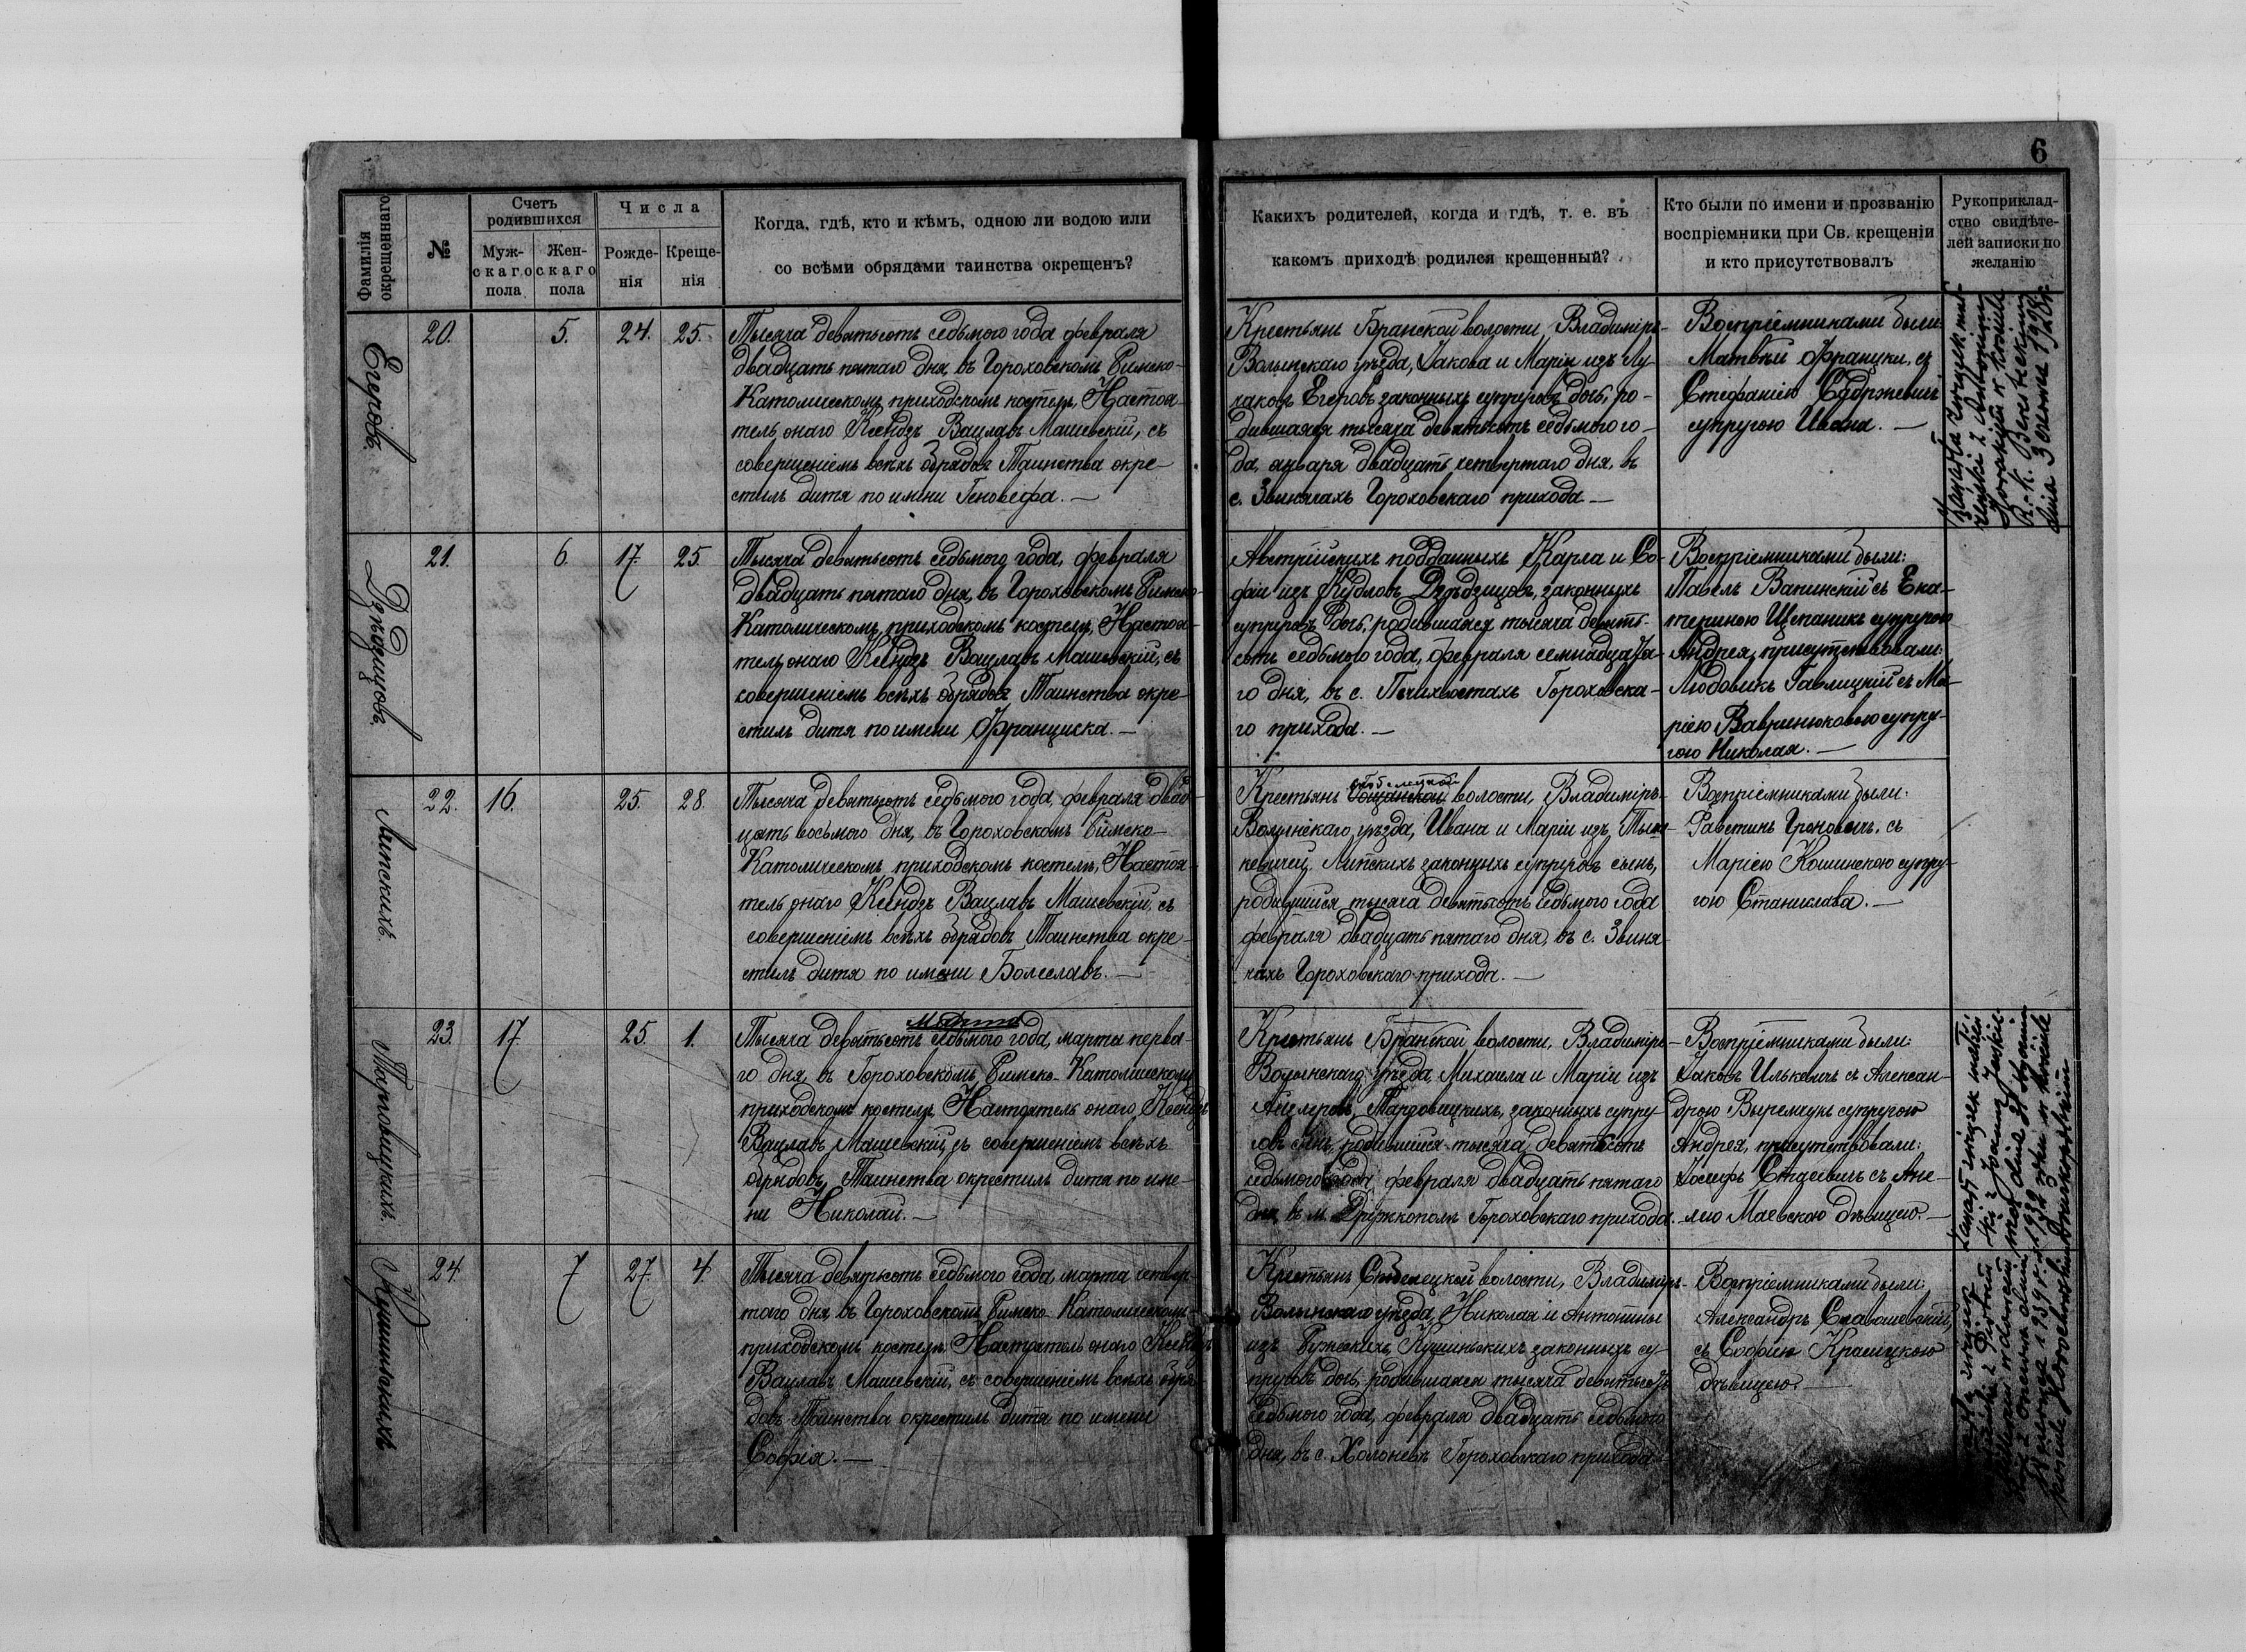 6
Фамилія
окрещеннаго
№
Счетъ
родившихся
Муж-
скаго
пола
Жен-
скаго
пола
Числа
Рожде-
нія
Креще-
нія
Когда, гдѣ, кто и кѣмъ, одною ли водою или
со всѣми обрядами таинства окрещенъ?
Какихъ родителей, когда и гдѣ, т. е. въ
какомъ приходѣ родился крещенный?
Кто были по имени и прозванію
воспріемники при Св. крещеніи
и кто присутствовалъ
Рукоприклад-
ство свидѣте-
лей записки по
желанію
Егеровъ
20.
5.
24.
25.
Тысяча девятьсотъ седьмого года февраля
двадцать пятаго дня, въ Гороховскомъ Римско-
Католическомъ приходскомъ костелѣ, Настоя-
тель онаго Ксендзъ Вацлавъ Машевскій, съ
совершеніемъ всѣхъ обрядовъ Таинства окре-
стилъ дитя по имени Геновефа. —
Крестьянъ Бранской волости, Владиміръ-
Волынскаго уѣзда, Іакова и Маріи изъ
Егеровъ законныхъ супруговъ дочь, ро-
дившаяся тысяча девятьсотъ седьмого го-
да, января двадцать четвертаго дня, въ
с. Звинячахъ Гороховскаго прихода —
Воспріемниками были:
Матвѣй Францки, съ
Стефаніею
супругою Ивана. —
21.
6.
17.
25.
Тысяча девятьсотъ седьмого года, февраля
двадцать пятаго дня, въ Гороховскомъ Римско-
Католическомъ приходскомъ костелѣ, Настоя-
тель онаго Ксендзъ Вацлавъ Машевскій, съ
совершеніемъ всѣхъ обрядовъ Таинства окре-
стилъ дитя по имени Франциска. —
Австрійскихъ подданныхъ Карла и Со-
фіи изъ законныхъ
супруговъ дочь, родившаяся тысяча девять-
сотъ седьмого года, февраля семнадцата-
го дня, въ с. Печихвостахъ Гороховска-
го прихода. —
Воспріемниками были:
Павелъ Вапинскій съ Ека-
териною Щепаникъ супругою
Андрея, присутствовали:
Людовикъ Гавлицкій съ Ма-
ріею Вавринюковою супру-
гою Николая. —
Липскихъ
22.
16.
25.
28.
Тысяча девятьсотъ седьмого года, февраля двад-
цать восьмого дня, въ Гороховскомъ Римско-
Католическомъ приходскомъ костелѣ, Настоя-
тель онаго Ксендзъ Вацлавъ Машевскій, съ
совершеніемъ всѣхъ обрядовъ Таинства окре-
стилъ дитя по имени Болеславъ. —
Крестьянъ волости, Владиміръ-
Волынскаго уѣзда, Ивана и Маріи изъ
Липскихъ законныхъ супруговъ сынъ,
родившійся тысяча девятьсотъ седьмого года
февраля двадцать пятаго дня, въ с. Звиня-
чахъ Гороховскаго прихода. —
Воспріемниками были:
съ
Маріею Кошинскою супру-
гою Станислава. —
Тарговицкихъ
23.
17.
25.
1.
Марта
Тысяча девятьсотъ седьмого года, марта перва-
го дня, въ Гороховскомъ Римско-Католическомъ
приходскомъ костелѣ, Настоятель онаго, Ксендзъ
Вацлавъ Машевскій, съ совершеніемъ всѣхъ
обрядовъ Таинства окрестилъ дитя по име-
ни Николай. —
Крестьянъ Бранской волости, Владиміръ-
Волынскаго уѣзда, Михаила и Маріи изъ
Тарговицкихъ, законныхъ супру-
говъ сынъ, родившійся тысяча девятьсотъ
седьмого года, февраля двадцать пятаго
дня, въ м. Дружкополѣ Гороховскаго прихода. —
Воспріемниками были:
Іаковъ Илькевичъ съ Алексан-
дрою супругою
Андрея, присутствовали:
Іосифъ съ Ане-
лею Маевскою дѣвицею. —
Кушинскихъ
24.
7
27.
4.
Тысяча девятьсотъ седьмого года, марта четвер-
таго дня, въ Гороховскомъ Римско-Католическомъ
приходскомъ костелѣ, Настоятель онаго Ксендзъ
Вацлавъ Машевскій, съ совершеніемъ всѣхъ обря-
довъ Таинства окрестилъ дитя по имени
Софія. —
Крестьянъ волости, Владиміръ-
Волынскаго уѣзда, Николая и Антонины
изъ Кушинскихъ законныхъ су-
пруговъ дочь, родившаяся тысяча девятьсотъ
седьмого года, февраля двадцать седьмого
дня, въ с. Холоневѣ Гороховскаго прихода
Воспріемниками были:
Александръ
съ Софіею Красицкою
дѣвицею. —